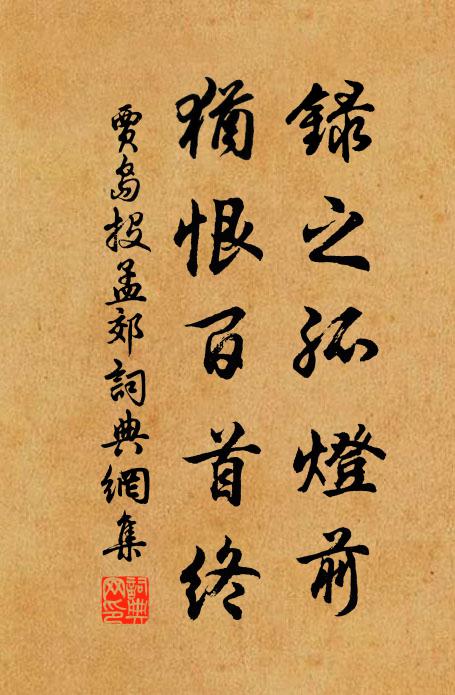 錄之孤燈前
猶恨百首終
賈島投孟郊詞典網集
詞典網印